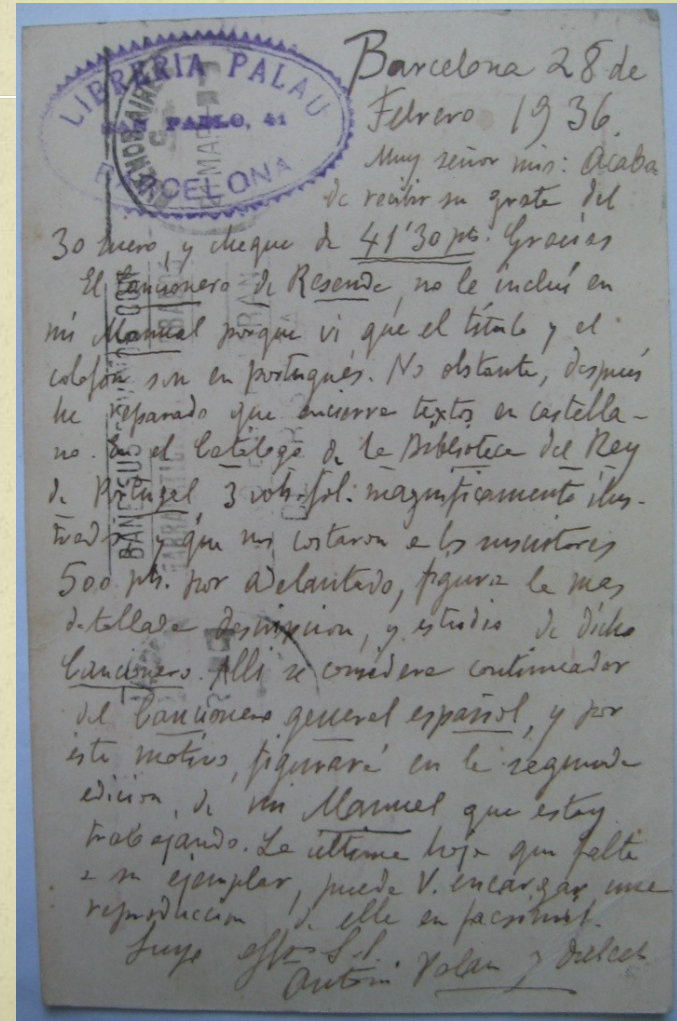 LIBRERIA PALAU
PABLO, 41
BARCELONA
Barcelona 28 de
Febrero 1936
Muy señor mio: Acabo
de recibir su grata del
30 Enero, y cheque de 41'30 pts. Gracias
El Cancionero de Resende, no le incluí en
mi Manual porque vi que el título y el
colofón son en portugués. No obstante, después
he reparado que encierra textos en castella-
no. En el Catálogo de la Biblioteca del Rey
de Portugal, 3 vols. fol. magnificamente ilus-
trados y que nos costaron a los suscritores
500 pts. por adelantado, figura la mas
detallada descripcion, y estudio de dicho
Cancionero. Alli se considera continuador
del Cancionero general español, y por
este motivo, figurará en la segunda
edicion, de mi Manual que estoy
trabajando. La última hoja que falta
a su ejemplar, puede V. encargar una
reproduccion de ella en facsimil.
Suyo affmo S.S.
Antonio Palau y Dulcet